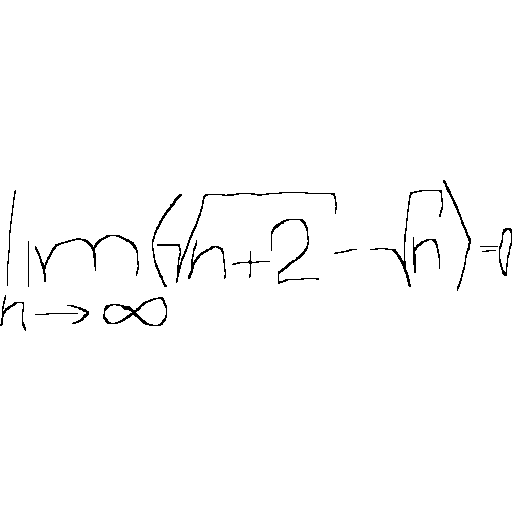 \lim_{n \to \infty} (\sqrt{n+2} - \sqrt{n}) = 0